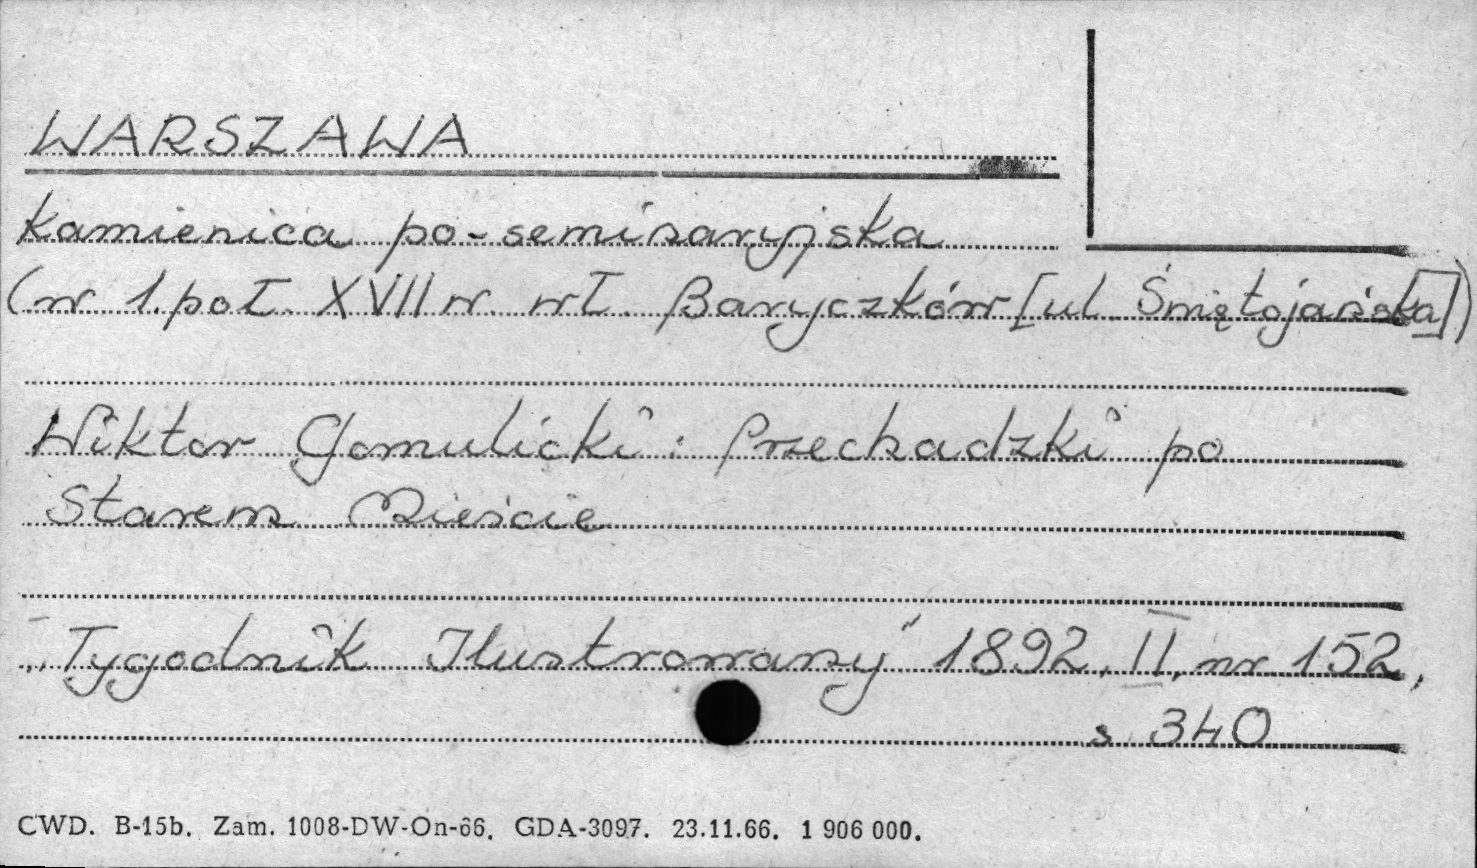 WARSZAWA
kamienica po-seminaryjska
(w 1. poł. XVII w wł. Baryczków [ul. Świętojańska])
Wiktor Gomulicki: Przechadzki po
Starem Mieście
„Tygodnik Ilustrowany" 1892, II, nr 152,
s. 340
CWD. B-15b. Zam. 1008-DW-On-66. GDA-3097. 23.11.66. 1 906 000.